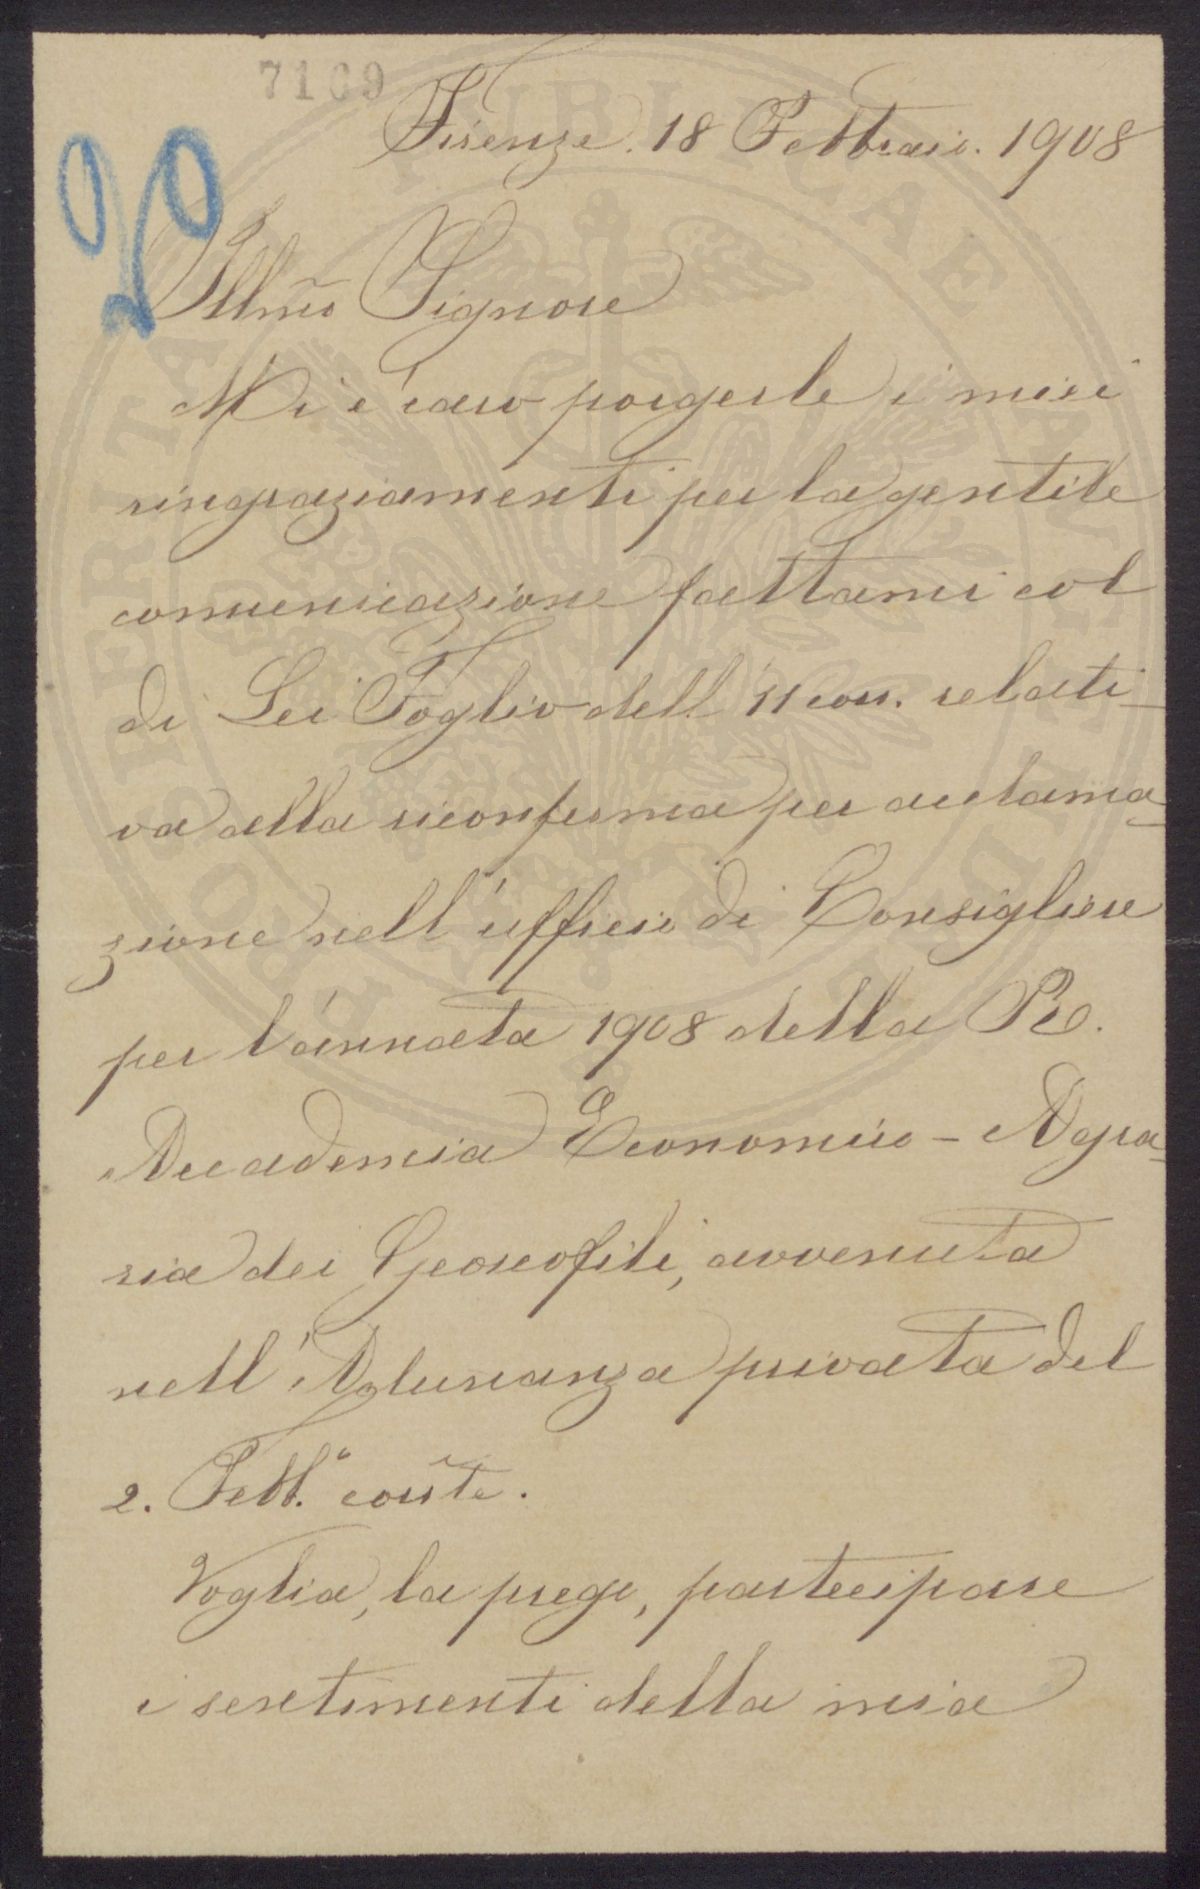 7169
20
Firenze. 18 Febbraio. 1908
Illm̃o Signore
Mi è caro porgerle i miei
ringraziamenti per la gentile
comunicazione fattami col
di Lei Foglio dell' 11 corr. relati-
va alla riconferma per acclama-
zione nell'ufficio di Consigliere
per l'annata 1908 della R.
Accademia Economico - Agra-
ria dei Georgofili, avvenuta
nell'Adunanza privata del
2. Febb.º corr̃te.
Voglia, la prego, partecipare
i sentimenti della mia
PROSPERITATI PUBLICAE AUGENDAE